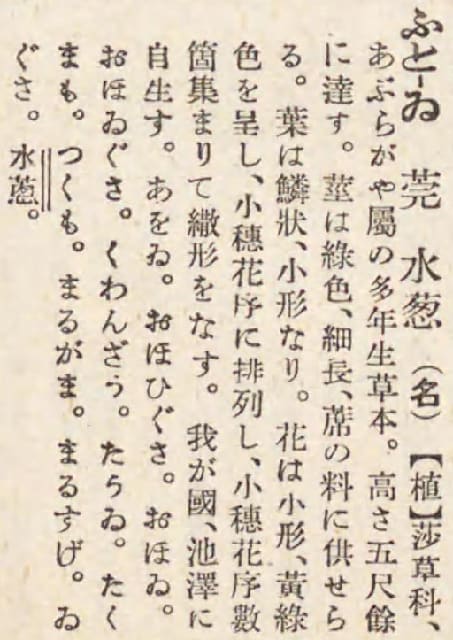 ふと-ゐ 莞 水葱 (名)【植】莎草科、
あぶらがや屬の多年生草本。高さ五尺餘
に達す。莖は綠色、細長、蓆の料に供せら
る。葉は鱗狀、小形なり。花は小形、黃綠
色を呈し、小穗花序に排列し、小穗花序數
箇集まりて繖形をなす。我が國、池澤に
自生す。あをゐ。おほひぐさ。おほゐ。
おほゐぐさ。くわんざう。たうゐ。たく
まも。つくも。まるがま。まるすげ。ゐ
ぐさ。水蔥。